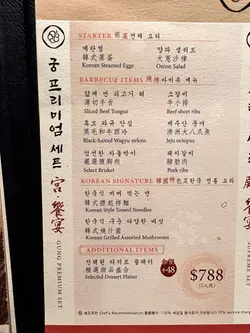 궁 프리미엄 세트
宮饗宴
GUNG PREMIUM SET
STARTER 前菜 전채 요리
계란찜
韓式蒸蛋
Korean Steamed Eggs
양파 샐러드
大蔥沙律
Onion Salad
BARBECUE ITEMS 燒烤 바비큐 메뉴
얇게 썬 쇠고기 혀
薄切牛舌
Sliced Beef Tongue
소갈비
牛小排
Beef short ribs
흑모 와규 안심
黑毛和牛西冷
Black-haired wagyu sirloin
제주산 문어
濟洲大八爪魚
Jeju octopus
엄선한 차돌박이
嚴選極胸肉
Select Brisket
돼지갈비
豬肋肉
Pork ribs
KOREAN SIGNATURE 韓國特色 한국 전통 요리
한국식 비빔 막는 면
韓式撈起拌麵
Korean Style Tossed Noodles
한국식 구운 다양한 버섯
韓式燒什菌
Korean Grilled Assorted Mushrooms
ADDITIONAL ITEMS
선택된 디저트 플래터
極選甜品盛合
Selected Dessert Platter
+48
$788
(2人用)
Chef's Recommendations